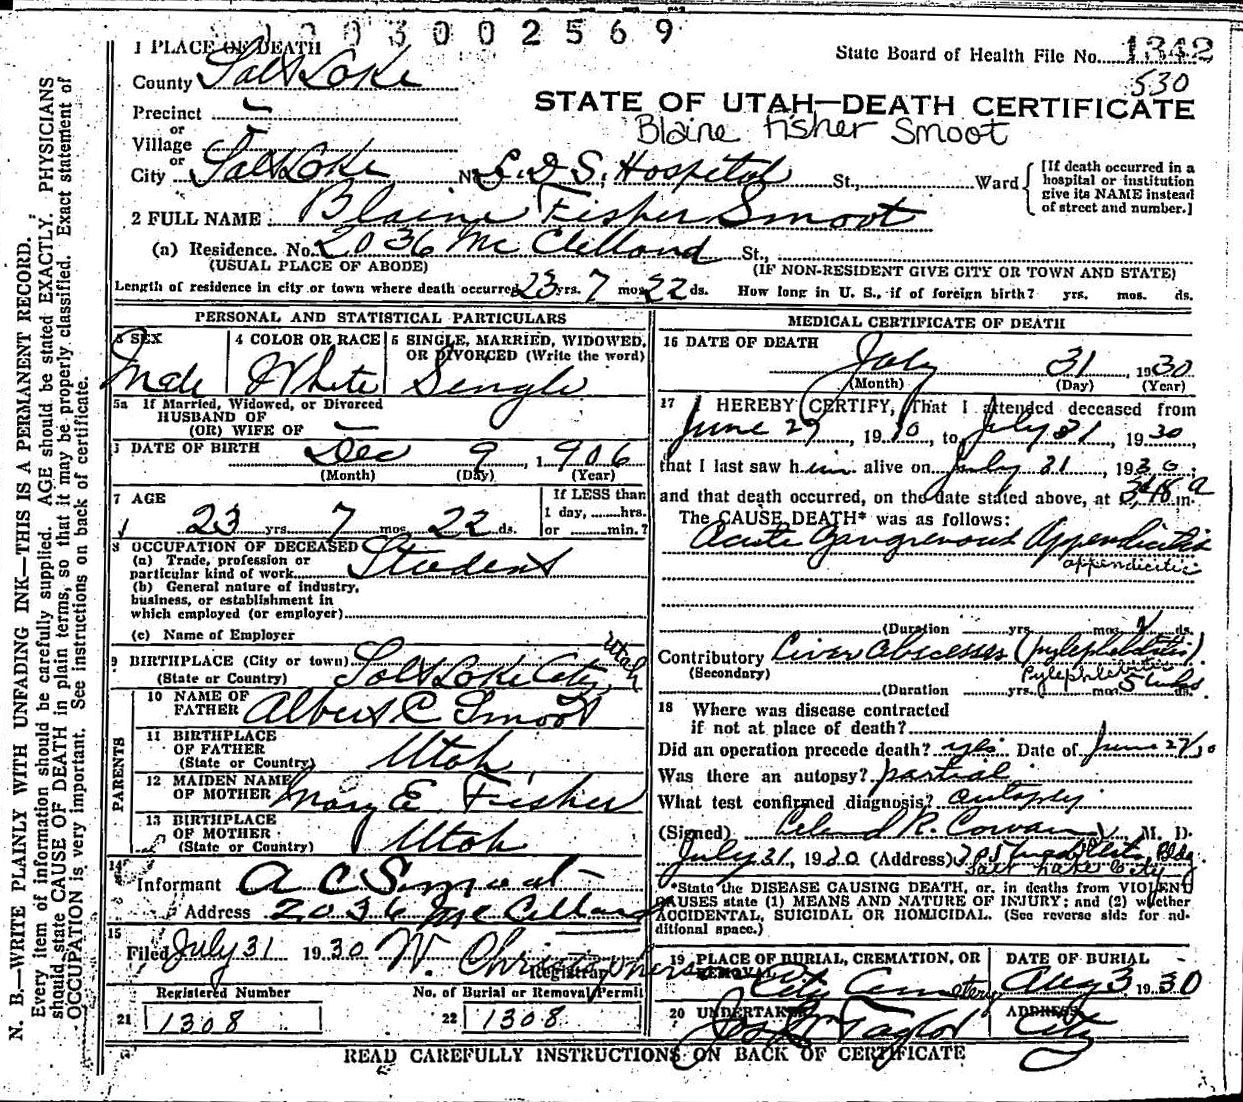 3 0 0 2 5 6 9
1 PLACE OF DEATH
State Board of Health File No. 1342
County Salt Lake
530
Precinct
STATE OF UTAH—DEATH CERTIFICATE
or
Blaine Fisher Smoot
Village
or
City Salt Lake No. L. D. S. Hospital St., Ward
[If death occurred in a hospital or institution give its NAME instead of street and number.]
2 FULL NAME Blaine Fisher Smoot
(a) Residence. No. 2036 McClelland St.,
(USUAL PLACE OF ABODE) (IF NON-RESIDENT GIVE CITY OR TOWN AND STATE)
Length of residence in city or town where death occurred 23 yrs. 7 mos. 22 ds. How long in U. S., if of foreign birth? yrs. mos. ds.
PERSONAL AND STATISTICAL PARTICULARS
3 SEX Male
4 COLOR OR RACE White
5 SINGLE, MARRIED, WIDOWED, OR DIVORCED (Write the word) Single
5a If Married, Widowed, or Divorced
HUSBAND OF
(OR) WIFE OF
DATE OF BIRTH Dec 9, 1906
(Month) (Day) (Year)
7 AGE 23 yrs 7 mos 22 ds.
If LESS than
1 day, ......hrs.
or ......min.?
8 OCCUPATION OF DECEASED
(a) Trade, profession or
particular kind of work Student
(b) General nature of industry,
business, or establishment in
which employed (or employer)
(c) Name of Employer
9 BIRTHPLACE (City or town) Salt Lake City Utah
(State or Country)
PARENTS
10 NAME OF FATHER Albert C Smoot
11 BIRTHPLACE OF FATHER
(State or Country) Utah
12 MAIDEN NAME OF MOTHER Mary E Fisher
13 BIRTHPLACE OF MOTHER
(State or Country) Utah
14
Informant A C Smoot
Address 2036 McClelland
15
Filed July 31 1930 W. Christopherson
Registrar
Registered Number No. of Burial or Removal Permit
21 1308 22 1308
MEDICAL CERTIFICATE OF DEATH
16 DATE OF DEATH
July 31, 1930
(Month) (Day) (Year)
17 HEREBY CERTIFY, That I attended deceased from
June 27, 1930, to July 31, 1930,
that I last saw him alive on July 31, 1930;
and that death occurred, on the date stated above, at m.
The CAUSE DEATH* was as follows:
Acute Gangrenous Appendicitis
appendicitis
(Duration yrs. mos. ds.
Contributory Liver Abscesses (pylephlebitis)
(Secondary) Pylephlebitis
(Duration yrs. mos. 5 wks ds.
18 Where was disease contracted
if not at place of death?
Did an operation precede death? yes Date of June 27/30
Was there an autopsy? partial
What test confirmed diagnosis? autopsy
(Signed) Leland R. Cowan, M. D.
July 31, 1930 (Address) Bldg
Salt Lake City
*State the DISEASE CAUSING DEATH, or, in deaths from VIOLENT
CAUSES state (1) MEANS AND NATURE OF INJURY; and (2) whether
ACCIDENTAL, SUICIDAL OR HOMICIDAL. (See reverse side for additional space.)
19 PLACE OF BURIAL, CREMATION, OR REMOVAL City Cemetery
DATE OF BURIAL Aug 3 1930
20 UNDERTAKER Taylor
ADDRESS City
READ CAREFULLY INSTRUCTIONS ON BACK OF CERTIFICATE
N. B.—WRITE PLAINLY WITH UNFADING INK—THIS IS A PERMANENT RECORD.
Every item of information should be carefully supplied. AGE should be stated EXACTLY. PHYSICIANS
should state CAUSE OF DEATH in plain terms, so that it may be properly classified. Exact statement of
OCCUPATION is very important. See instructions on back of certificate.